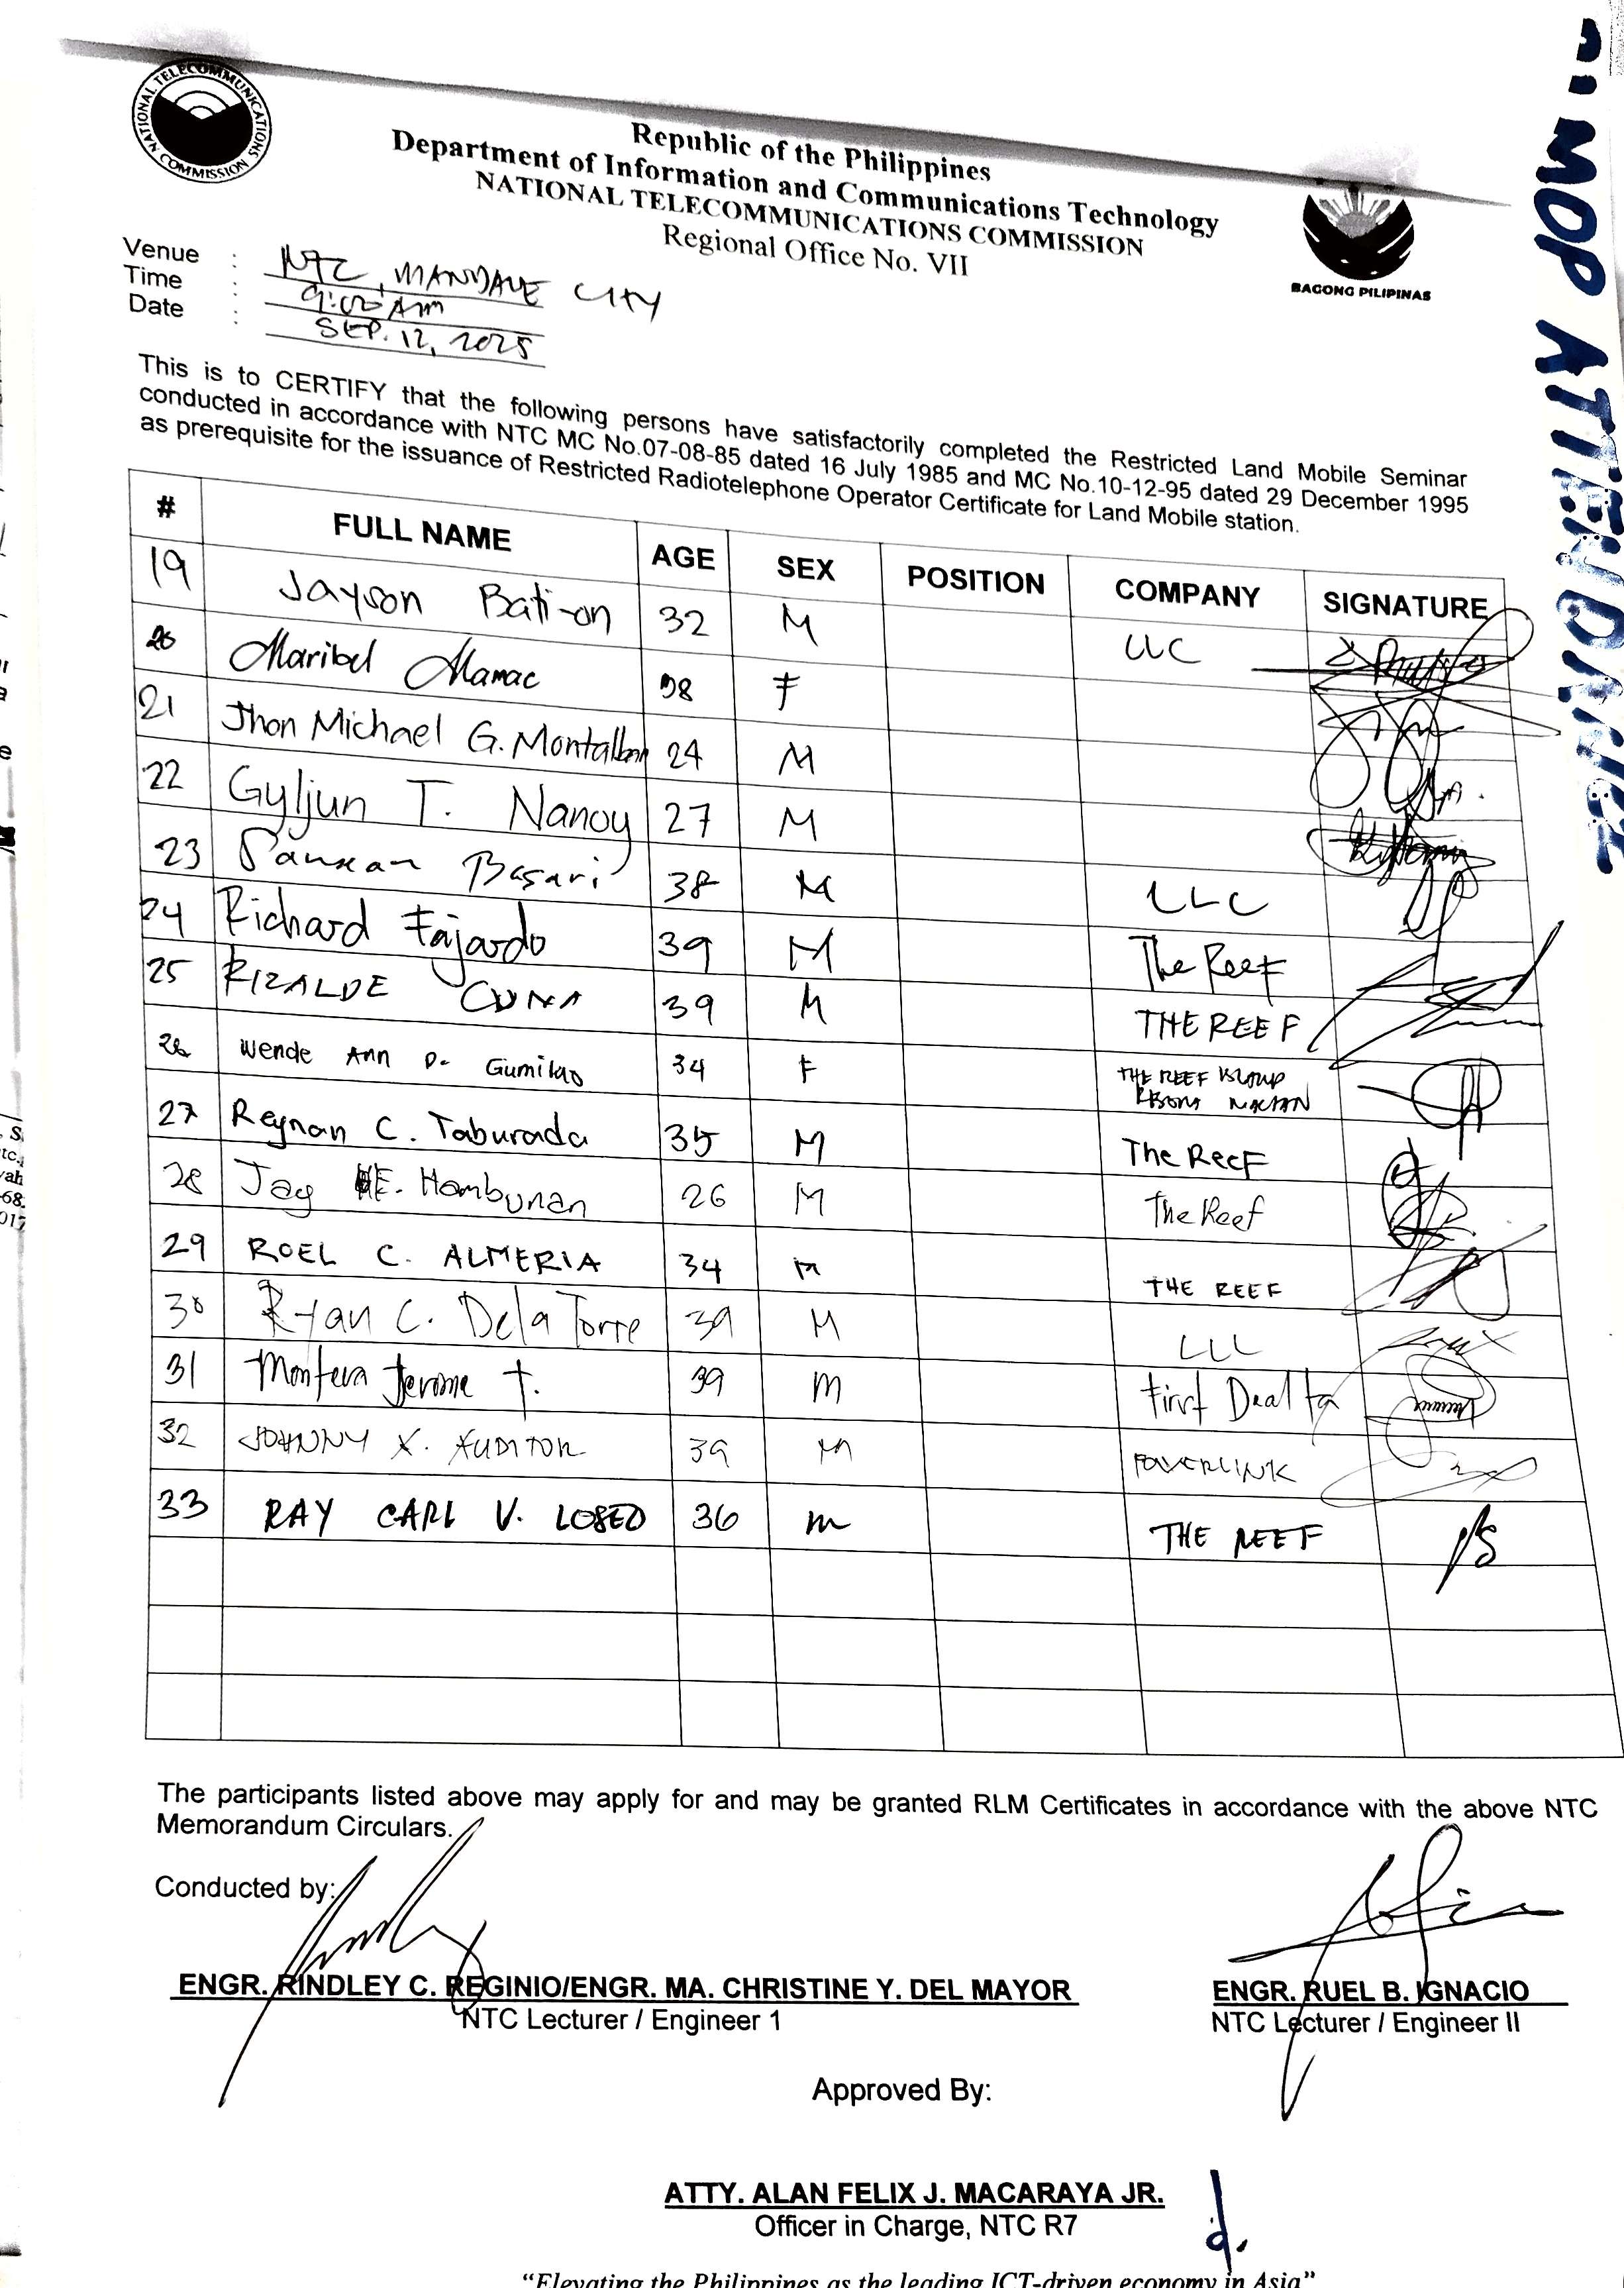 NATIONAL TELECOMMUNICATIONS COMMISSION
Republic of the Philippines
Department of Information and Communications Technology
NATIONAL TELECOMMUNICATIONS COMMISSION
Regional Office No. VII
BAGONG PILIPINAS
MOP ATTENDANCE
Venue : NTC, MANDAUE CITY
Time : 9:00 AM
Date : SEP. 12, 2025
This is to CERTIFY that the following persons have satisfactorily completed the Restricted Land Mobile Seminar
conducted in accordance with NTC MC No.07-08-85 dated 16 July 1985 and MC No.10-12-95 dated 29 December 1995
as prerequisite for the issuance of Restricted Radiotelephone Operator Certificate for Land Mobile station.
# FULL NAME AGE SEX POSITION COMPANY SIGNATURE
19 Jayson Bati-on 32 M LLC
20 Maribel Mamac 38 F
21 Jhon Michael G. Montalban 24 M
22 Gyljun T. Nanoy 27 M
23 Basari 38 M LLC
24 Richard Fajardo 39 M The Reef
25 RIZALDE CUNA 39 M THE REEF
26 Wende Ann D. Gumilao 34 F THE REEF ISLAND
RESORT MACTAN
27 Reynan C. Taburada 35 M The Reef
28 Jay E. Hambunan 26 M The Reef
29 ROEL C. ALMERIA 34 M THE REEF
30 Ryan C. Dela Torre 39 M LLC
31 Jerome T. 39 M First Dealta
32 JOHNNY X. AUDITOR 39 M POWERLINK
33 RAY CARL V. LOSED 36 M THE REEF
The participants listed above may apply for and may be granted RLM Certificates in accordance with the above NTC
Memorandum Circulars.
Conducted by:
ENGR. RINDLEY C. REGINIO/ENGR. MA. CHRISTINE Y. DEL MAYOR
NTC Lecturer / Engineer 1
ENGR. RUEL B. IGNACIO
NTC Lecturer / Engineer II
Approved By:
ATTY. ALAN FELIX J. MACARAYA JR.
Officer in Charge, NTC R7
"Elevating the Philippines as the leading ICT-driven economy in Asia"